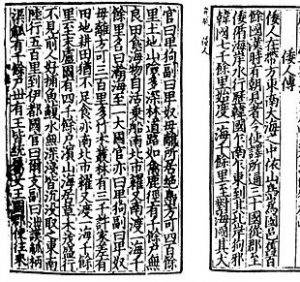 倭人傳
倭人在帶方東南大海之中依山㠀為國邑舊百
餘國漢時有朝見者今使譯所通三十國從郡至
倭循海岸水行歷韓國乍南乍東到其北岸狗邪
韓國七千餘里始度一海千餘里至對海國其大
官曰卑狗副曰卑奴毋離所居絶㠀方可四百餘
里土地山險多深林道路如禽鹿徑有千餘戸無
良田食海物自活乗船南北市糴又南渡一海千
餘里名曰瀚海至一大國官亦曰卑狗副曰卑奴
毋離方可三百里多竹木叢林有三千許家差有
田地耕田猶不足食亦南北市糴又渡一海千餘
里至末盧國有四千餘戸濱山海居草木茂盛行
不見前人好捕魚鰒水無深淺皆沉没取之東南
陸行五百里到伊都國官曰爾支副曰泄謨觚柄
渠觚有千餘戸丗有王皆統屬女王國郡使往來